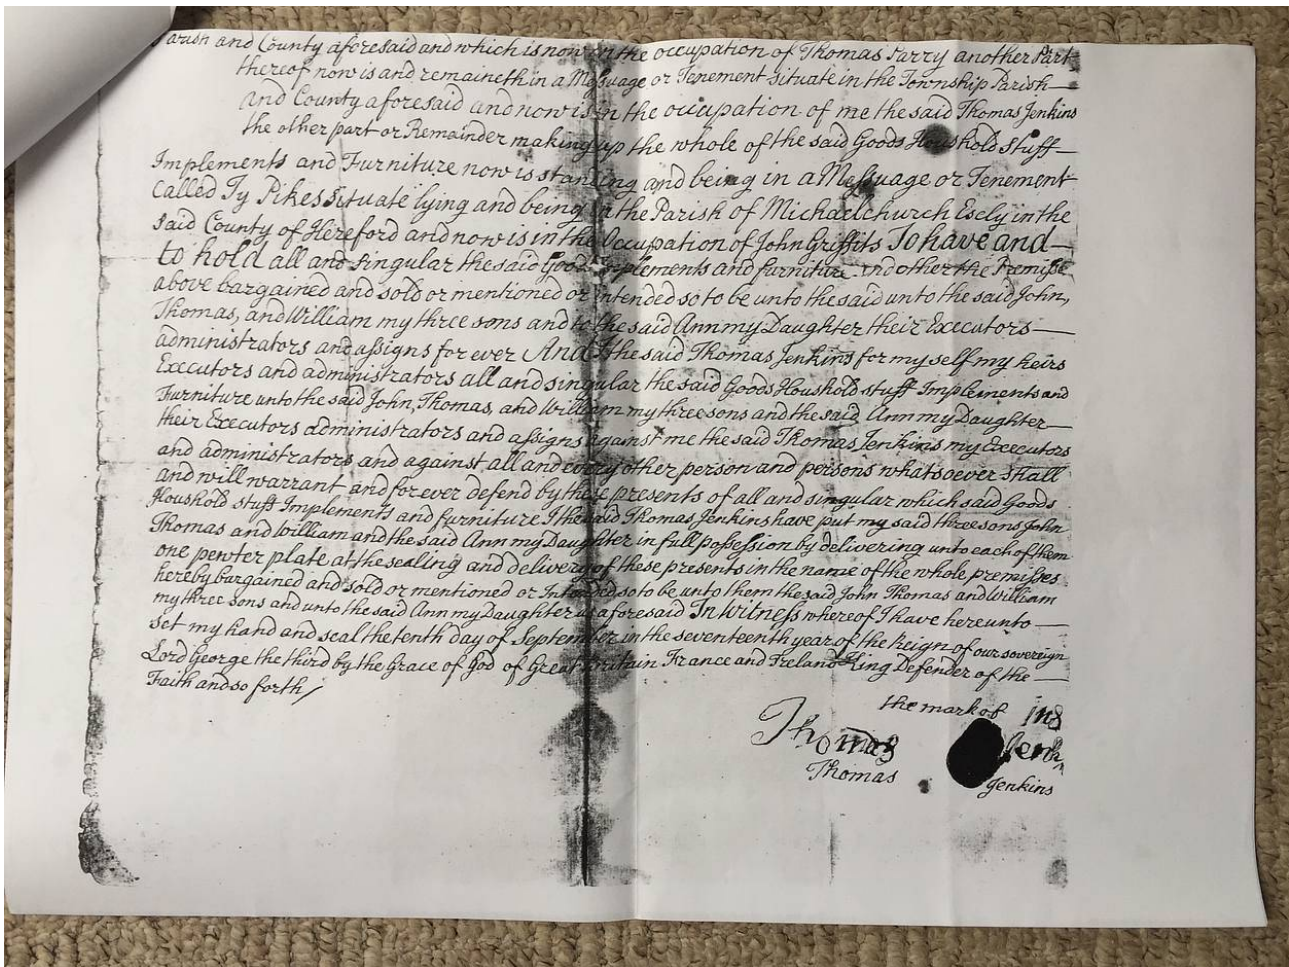 Parish and County aforesaid and which is now in the occupation of Thomas Parry another Part
thereof now is and remaineth in a Messuage or Tenement situate in the Township Parish
and County aforesaid and now is in the occupation of me the said Thomas Jenkins
the other part or Remainder making up the whole of the said Goods Houshold stuff
Implements and Furniture now is standing and being in a Messuage or Tenement
called Ty Pikes situate lying and being in the Parish of Michaelchurch Escly in the
said County of Hereford and now is in the Occupation of John Griffits To have and
to hold all and singular the said Goods Implements and furniture and other the Premisses
above bargained and sold or mentioned or intended so to be unto the said unto the said John,
Thomas, and William my three sons and to the said Ann my Daughter their Executors
administrators and assigns for ever And I the said Thomas Jenkins for my self my heirs
Executors and administrators all and singular the said Goods Houshold stuff Implements and
Furniture unto the said John, Thomas, and William my three sons and the said Ann my Daughter
their Executors administrators and assigns against me the said Thomas Jenkins my Executors
and administrators and against all and every other person and persons whatsoever shall
and will warrant and for ever defend by these presents of all and singular which said Goods
Houshold stuff Implements and furniture I the said Thomas Jenkins have put my said three sons John
Thomas and William and the said Ann my Daughter in full possession by delivering unto each of them
one pewter plate at the sealing and delivery of these presents in the name of the whole premisses
hereby bargained and sold or mentioned or Intended so to be unto them the said John Thomas and William
my three sons and unto the said Ann my Daughter as aforesaid In witness whereof I have hereunto
set my hand and seal the tenth day of September in the seventeenth year of the Reign of our sovereign
Lord George the third by the Grace of God of Great Britain France and Ireland King Defender of the
Faith and so forth
the mark of ins
Thomas Jenk
Thomas Jenkins